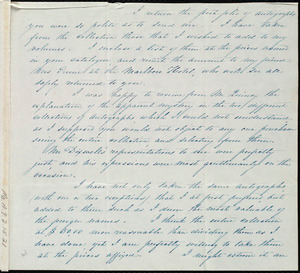 I return the first folio of autographs
you were so polite as to send me. I have taken
from the collection those that I wished to add to my
volumes. I enclose a list of them at the prices named
in your catalogue and remit the amount to my friend
Mrs at the Marlboro Hotel, who will see
safely returned to you.
I was happy to receive from Mr
explanation of the apparent mystery in the two different
collections of autographs which I could not understand
as I supposed you would not object to any one purchasing
the entire collection and selecting from them.
Mr representations to she are perfectly
just and his expressions were most gentlemanly on the
occasion.
I have not only taken the same autographs
with one or two exceptions that I at first proposed but
added to them such as I deem the most valuable of
the younger names. I think the entire collection
at $ more reasonable than dividing them as I
have done yet I am perfectly willing to take them
at the prices affixed. I might esteem it an